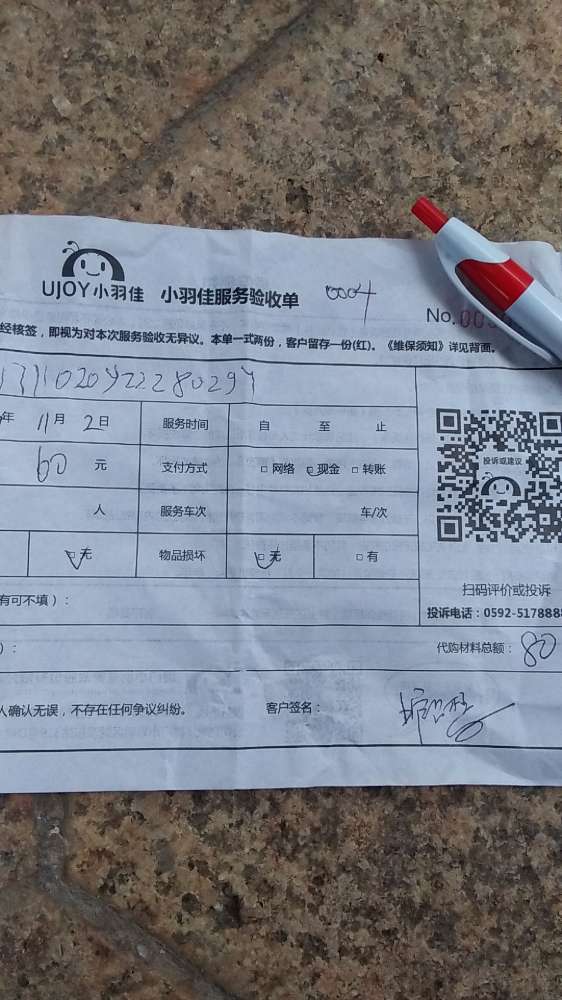 UJOY小羽佳 小羽佳服务验收单 0004
No.00
经核签，即视为对本次服务验收无异议。本单一式两份，客户留存一份(红)。《维保须知》详见背面。
年 11月 2日 服务时间 自 至 止
60 元 支付方式 □ 网络 □ 现金 □ 转账
投诉或建议
人 服务车次 车/次
□ 无 物品损坏 □ 无 □ 有
扫码评价或投诉
有可不填）：
投诉电话：0592-5178888
）：
代购材料总额：80
人确认无误，不存在任何争议纠纷。 客户签名：